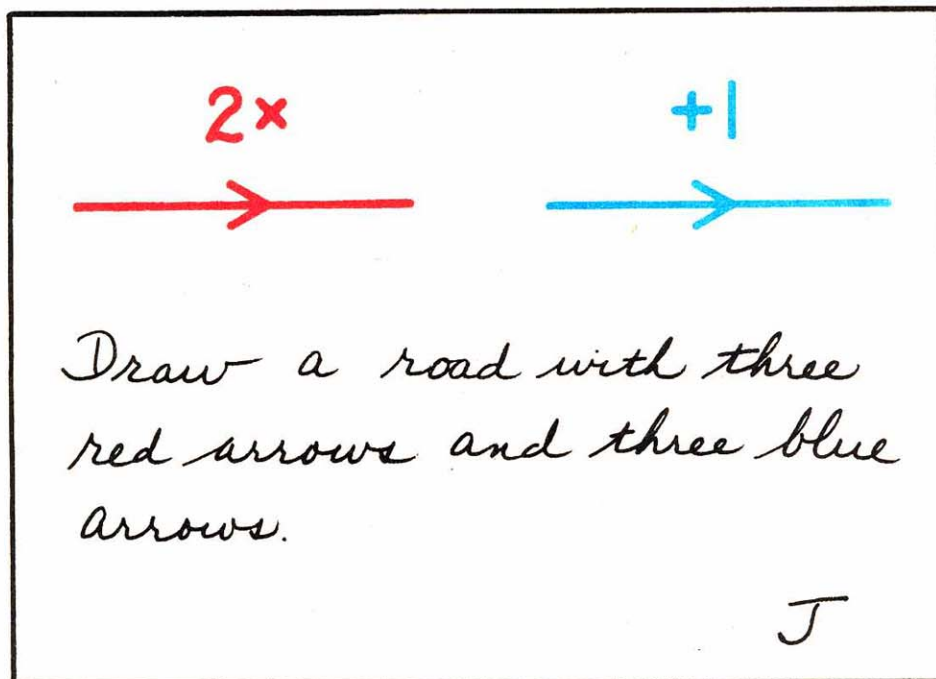 2x +1
Draw a road with three
red arrows and three blue
arrows.
J